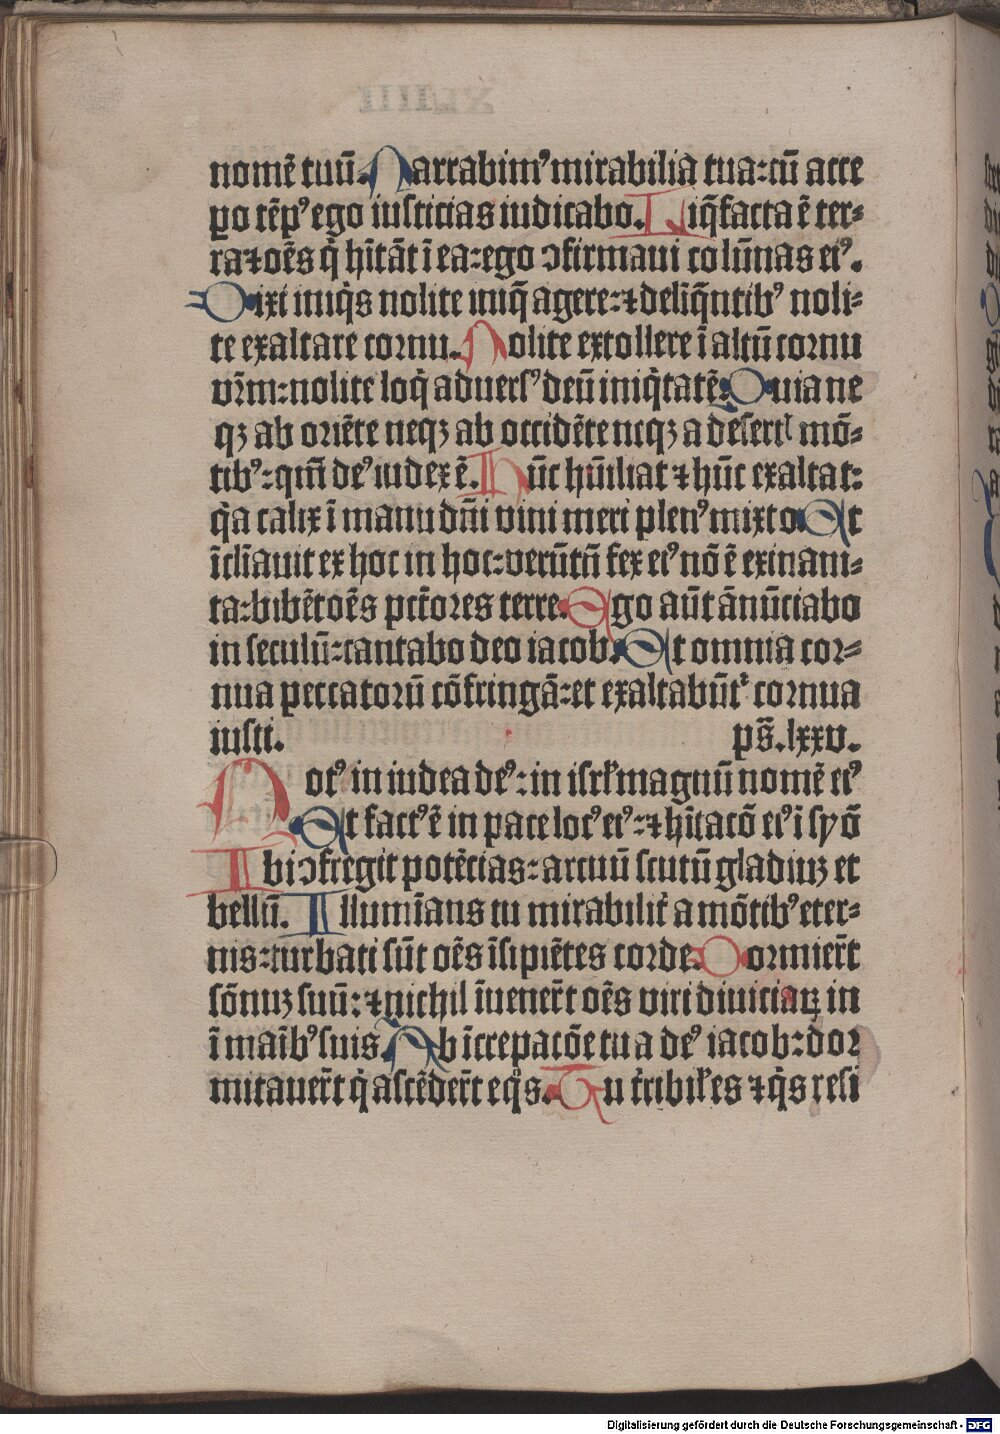 nomē tuū. Narrabim⁹ mirabilia tua: cū acce
ꝑo tēp⁹ ego iusticias iudicabo. Liq̄facta ē ter-
ra ⁊ oēs q̇ hītāt ī ea: ego ↄfirmaui colūnas ei⁹.
Dixi iniq̇s nolite iniq̄ agere: ⁊ deliq̄ntib⁹ noli-
te exaltare cornu. Nolite extollere ī altū cornu
vr̄m: nolite loq̇ aduers⁹ deū iniq̇tatē. Quia ne
qꝫ ab oriēte neqꝫ ab occidēte neqꝫ a desertꝭ mō-
tib⁹: qm̄ de⁹ iudex ē. Hūc hūiliat ⁊ hūc exaltat:
q̇a calix ī manu dn̄i vini meri plen⁹ mixto. Et
īclīauit ex hoc in hoc: verūtn̄ fex ei⁹ nō ē exinani-
ta: bibēt oēs pctōres terre. Ego aūt ānūciabo
in seculū: cantabo deo iacob. Et omnia cor-
nua peccatorū cōfringā: et exaltabūtᷣ cornua
iusti. ps̄. lxxv.
Not⁹ in iudea de⁹: in isrl̄ magnū nomē ei⁹
Et fact⁹ ē in pace loc⁹ ei⁹: ⁊ hītacō ei⁹ ī syō
Ibi ↄfregit potēcias: arcuū scutū gladiuꝫ et
bellū. Illumīans tu mirabilit̄ a mōtib⁹ eter-
nis: turbati sūt oēs īsipiētes corde. Dormier̄t
sōnuꝫ suū: ⁊ nichil īuener̄t oēs viri diuiciaꝝ in
ī maīb⁹ suis. Ab īcrepacōe tua de⁹ iacob: dor
mitauer̄t q̇ ascēder̄t eq̊s. Tu t̄ribil̄es ⁊ q̇s resi
Digitalisierung gefördert durch die Deutsche Forschungsgemeinschaft - DFG